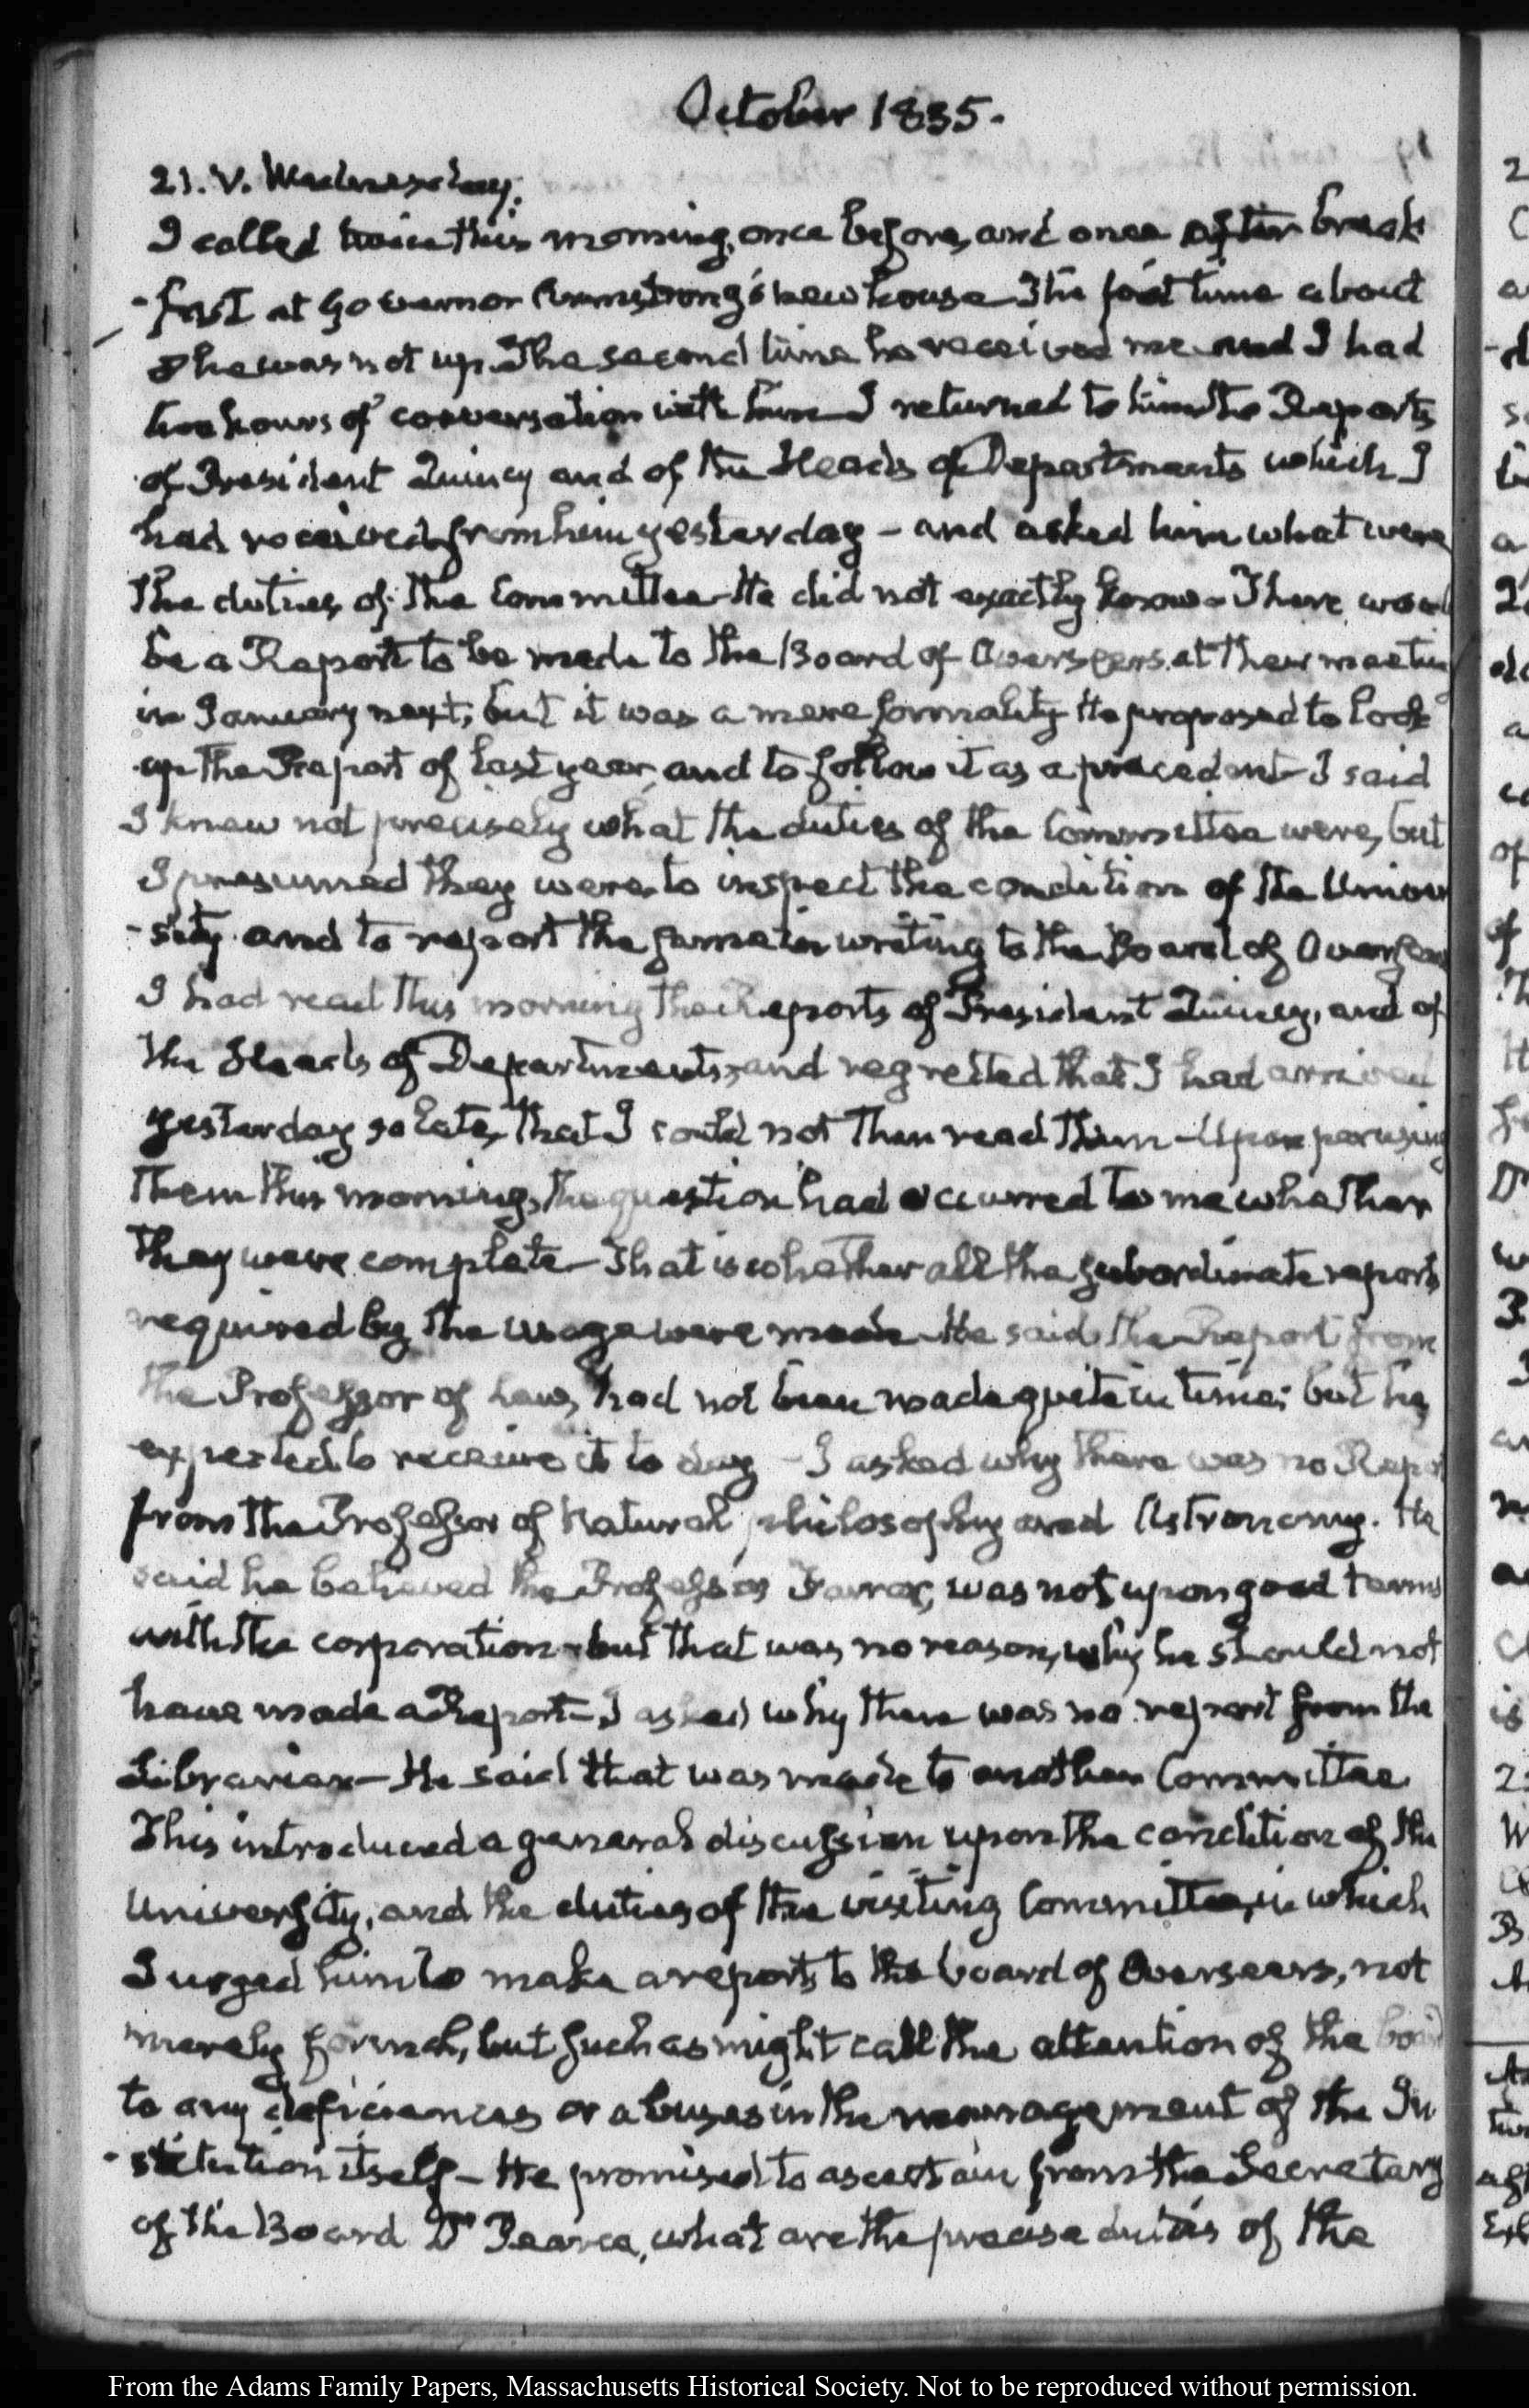 October 1835.
21. V. Wednesday.
I called twice this morning, once before, and once after break
-fast at Governor Armstrong's new house The first time about
8 he was not up. The second time he received me and I had
two hours of conversation with him I returned to him the Reports
of President Quincy and of the Heads of Departments which I
had received from him yesterday - and asked him what were
the duties of the Committee - He did not exactly know - There would
be a Report to be made to the Board of Overseers at their meeting
in January next; but it was a mere formality He proposed to look
up the Report of last year, and to follow it as a precedent - I said
I knew not precisely what the duties of the Committee were, but
I presumed they were to inspect the condition of the Univer
-sity and to report the same in writing to the Board of Overseers
I had read this morning the Reports of President Quincy, and of
the Heads of Departments; and regretted that I had arrived
yesterday so late, that I could not then read them - Upon perusing
them this morning, the question had occurred to me whether
they were complete - That is whether all the subordinate reports
required by the usage were made - He said the Report from
the Professor of Law, had not been made quite in time; but he
expected to receive it to day - I asked why there was no Report
from the Professor of Natural philosophy and Astronomy. He
said he believed the Professor Farrar, was not upon good terms
with the corporation - but that was no reason, why he should not
have made a Report - I asked why there was no report from the
Librarian - He said that was made to another Committee.
This introduced a general discussion upon the condition of the
University, and the duties of the visiting Committee, in which
I urged him to make a report, to the board of Overseers, not
merely formal, but such as might call the attention of the board
to any deficiencies or abuses in the management of the In
-stitution itself - He promised to ascertain from the Secretary
of the Board Dr Pearce, what are the precise duties of the
From the Adams Family Papers, Massachusetts Historical Society. Not to be reproduced without permission.